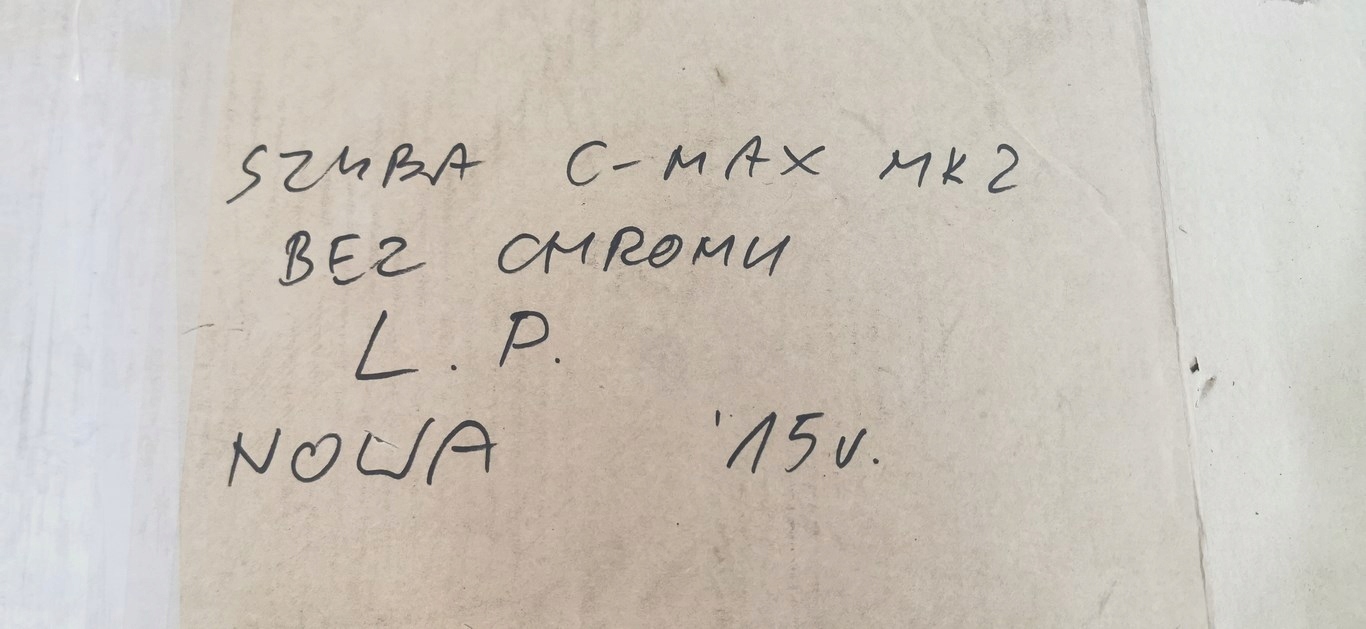 SZYBA C-MAX MK2
BEZ CHROMU
L. P.
NOWA '15r.